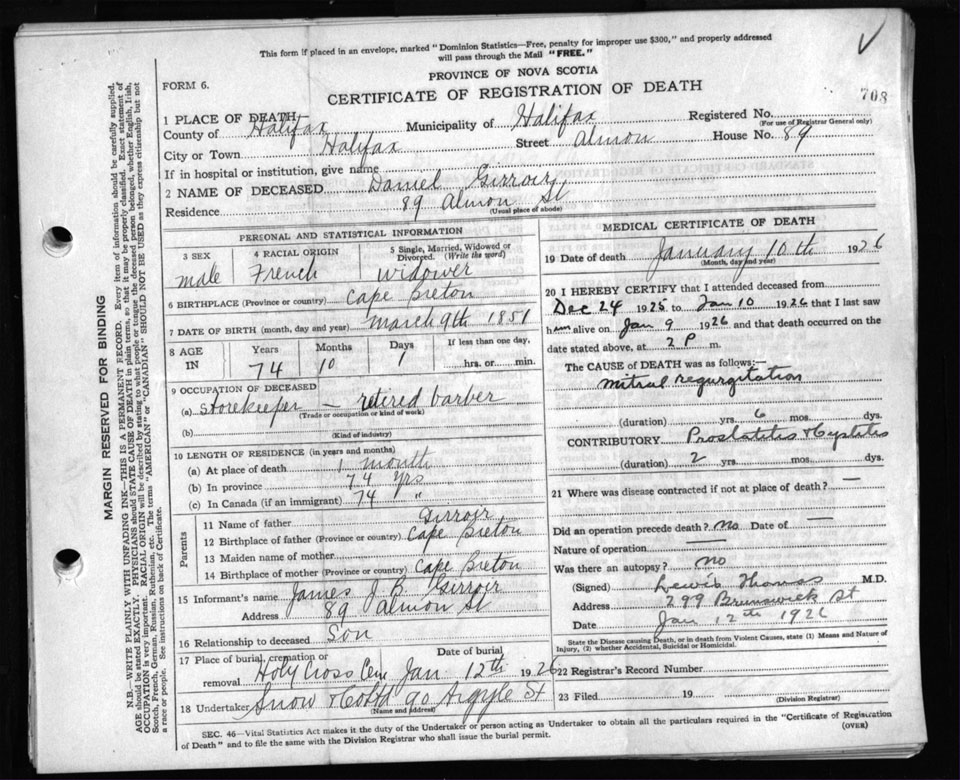 This form if placed in an envelope, marked "Dominion Statistics—Free, penalty for improper use $300," and properly addressed
will pass through the Mail "FREE."
PROVINCE OF NOVA SCOTIA
FORM 6.
CERTIFICATE OF REGISTRATION OF DEATH
708
1 PLACE OF DEATH
County of Halifax Municipality of Halifax Registered No.
(For use of Registrar General only)
City or Town Halifax Street Almon House No. 89
If in hospital or institution, give name
2 NAME OF DECEASED Daniel Girroir
Residence 89 Almon St
(Usual place of abode)
PERSONAL AND STATISTICAL INFORMATION
3 SEX 4 RACIAL ORIGIN 5 Single, Married, Widowed or
Divorced. (Write the word)
male French widower
6 BIRTHPLACE (Province or country) Cape Breton
7 DATE OF BIRTH (month, day and year) March 9th 1851
8 AGE IN Years Months Days If less than one day,
74 10 1 hrs. or min.
9 OCCUPATION OF DECEASED
(a) Storekeeper — retired barber
(Trade or occupation or kind of work)
(b)
(Kind of industry)
10 LENGTH OF RESIDENCE (in years and months)
(a) At place of death 1 month
(b) In province 74 yrs
(c) In Canada (if an immigrant) 74 "
Parents
11 Name of father Girroir
12 Birthplace of father (Province or country) Cape Breton
13 Maiden name of mother
14 Birthplace of mother (Province or country) Cape Breton
15 Informant's name James J B Girroir
Address 89 Almon St
16 Relationship to deceased Son
17 Place of burial, cremation or Date of burial
removal Holy Cross Cem Jan 12th 1926
18 Undertaker Snow & Co Ltd 90 Argyle St
(Name and address)
MEDICAL CERTIFICATE OF DEATH
19 Date of death January 10th 1926
(Month, day and year)
20 I HEREBY CERTIFY that I attended deceased from
Dec 24 1925 to Jan 10 1926 that I last saw
him alive on Jan 9 1926 and that death occurred on the
date stated above, at 2 P m.
The CAUSE OF DEATH was as follows:—
Mitral regurgitation
(duration) yrs. 6 mos. dys.
CONTRIBUTORY Prostatitis & Cystitis
(duration) 2 yrs. mos. dys.
21 Where was disease contracted if not at place of death? —
Did an operation precede death? No Date of —
Nature of operation —
Was there an autopsy? No
(Signed) Lewis Thomas M.D.
Address 299 Brunswick St
Date Jan 12th 1926
State the Disease causing Death, or in death from Violent Causes, state (1) Means and Nature of
Injury, (2) whether Accidental, Suicidal or Homicidal.
22 Registrar's Record Number
23 Filed 19
(Division Registrar)
SEC. 46—Vital Statistics Act makes it the duty of the Undertaker or person acting as Undertaker to obtain all the particulars required in the "Certificate of Registration
of Death" and to file the same with the Division Registrar who shall issue the burial permit.
(OVER)
MARGIN RESERVED FOR BINDING
N.B.—WRITE PLAINLY WITH UNFADING INK—THIS IS A PERMANENT RECORD. Every item of information should be carefully supplied.
AGE should be stated EXACTLY. PHYSICIANS should STATE CAUSE OF DEATH in plain terms, so that it may be properly classified. Exact statement of
OCCUPATION is very important. RACIAL ORIGIN will be described by stating to what people or tongue the deceased person belonged, whether English, Irish,
Scotch, French, German, Russian, Ruthenian, etc. The terms "AMERICAN" or "CANADIAN" SHOULD NOT BE USED as they express citizenship but not
a race or people. See instructions on back of Certificate.